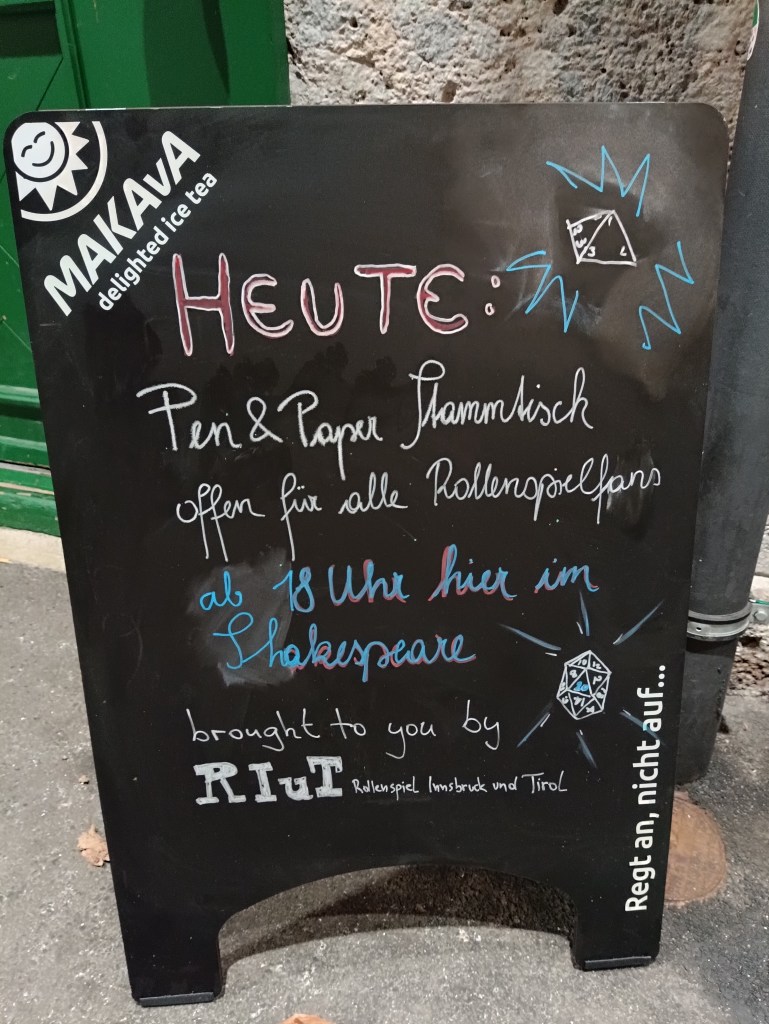 MAKAvA
delighted ice tea
HEUTE:
Pen & Paper Stammtisch
offen für alle Rollenspielfans
ab 18 Uhr hier im
Shakespeare
brought to you by
RIuT Rollenspiel Innsbruck und Tirol
Regt an, nicht auf...